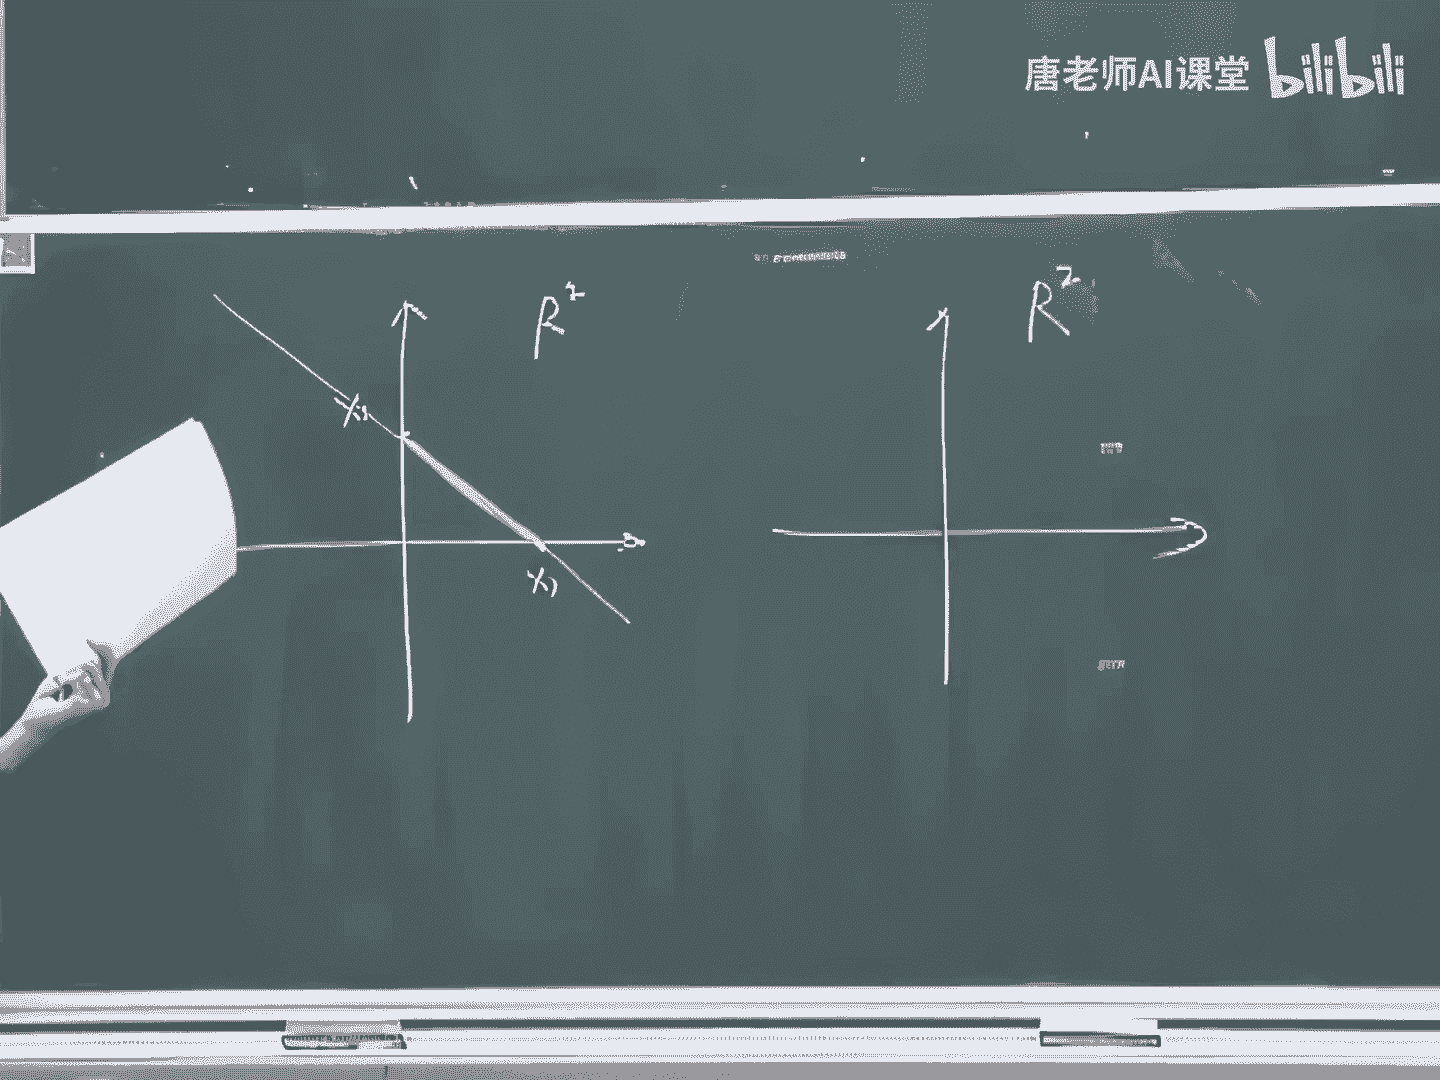 唐老师AI课堂 bilibili
R²
R²
x₁